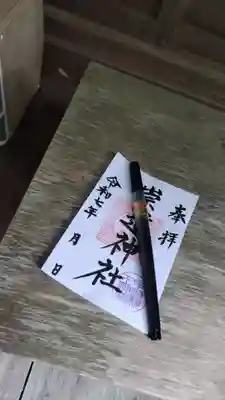 奉拝
崇道神社
令和七年 月 日